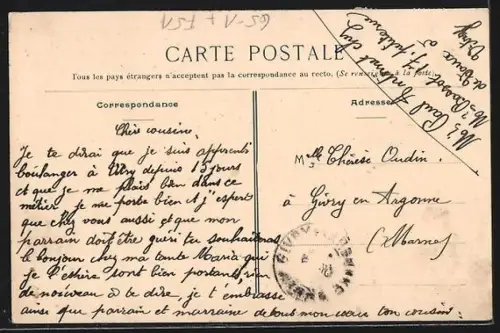 CARTE POSTALE
Tous les pays étrangers n'acceptent pas la correspondance au recto. (Se renseigner à la poste)
Correspondance
Chère cousine,
Je te dirai que je suis apprenti
boulanger à Vitry depuis 15 jours
et que je me plais bien dans ce
métier. je me porte bien et j'espert
que chez vous aussi et que mon
parrain doit être guéri. tu souhaiteras
le bonjour chez ma tante Maria qui
je l'éspère sont bien portants, rien
de nouveau a te dire, je t'embrasse
ainsi que parrain et marraine de tous mon cœur ton cousin
Adresse
Mlle Thérèse Oudin
à
Givry en Argonne
(Marne)
Mr Paul chez
Mr